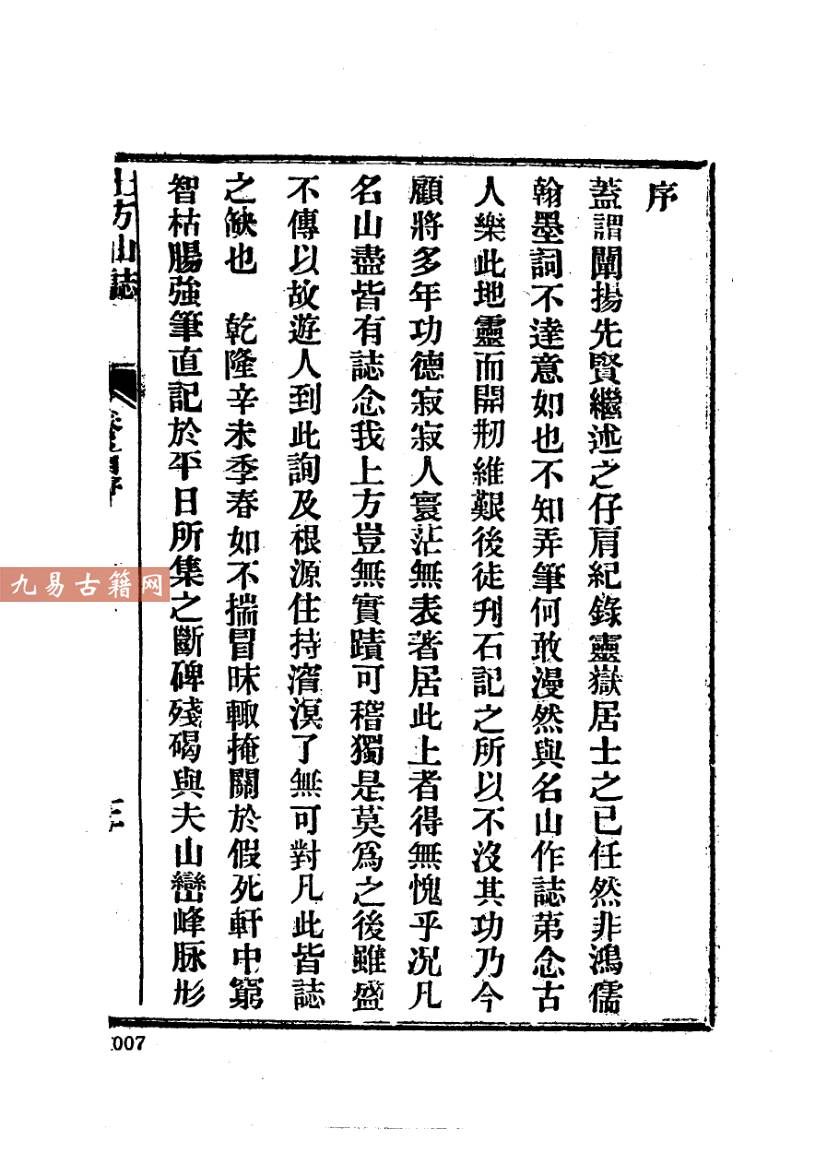 序
蓋謂闡揚先賢繼述之仔肩紀錄靈嶽居士之已任然非鴻儒
翰墨詞不達意如也不知弄筆何敢漫然與名山作誌第念古
人樂此地靈而開刱維艱後徒刋石記之所以不沒其功乃今
顧將多年功德寂寂人寰茫無表著居此上者得無愧乎況凡
名山盡皆有誌念我上方豈無實蹟可稽獨是莫爲之後雖盛
不傳以故遊人到此詢及根源住持濸溟了無可對凡此皆誌
之缺也　乾隆辛未季春如不揣冒昧輙掩關於假死軒中窮
智枯腸強筆直記於平日所集之斷碑殘碣與夫山巒峰脉形
上方山誌
三
九易古籍网
007